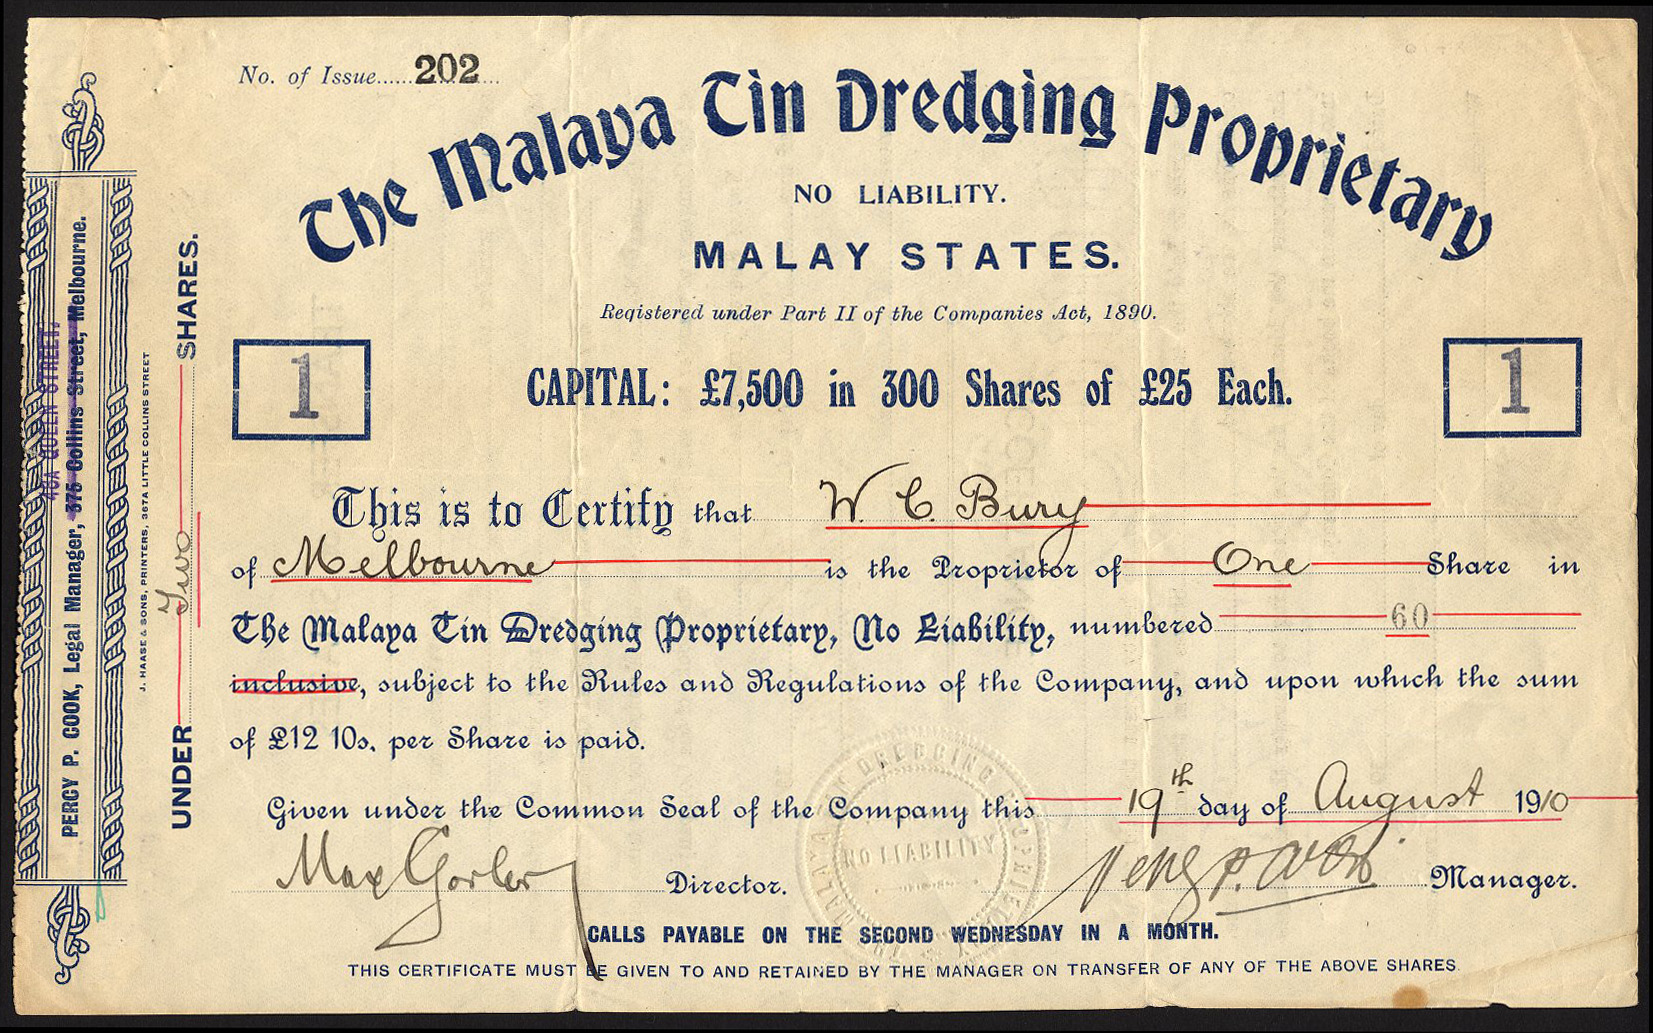 No. of Issue......202...
The Malaya Tin Dredging Proprietary
NO LIABILITY.
MALAY STATES.
Registered under Part II of the Companies Act, 1890.
1
CAPITAL: £7,500 in 300 Shares of £25 Each.
1
This is to Certify that W. C. Bury
of Melbourne is the Proprietor of One Share in
The Malaya Tin Dredging Proprietary, No Liability, numbered 60
inclusive, subject to the Rules and Regulations of the Company, and upon which the sum
of £12 10s. per Share is paid.
Given under the Common Seal of the Company this 19th day of August 1910
Max Director. Manager.
CALLS PAYABLE ON THE SECOND WEDNESDAY IN A MONTH.
THIS CERTIFICATE MUST BE GIVEN TO AND RETAINED BY THE MANAGER ON TRANSFER OF ANY OF THE ABOVE SHARES.
UNDER Two SHARES.
J. HAASE & SONS, PRINTERS, 367A LITTLE COLLINS STREET
PERCY P. COOK, Legal Manager, 375 Collins Street, Melbourne.
QUEEN STREET,
NO LIABILITY